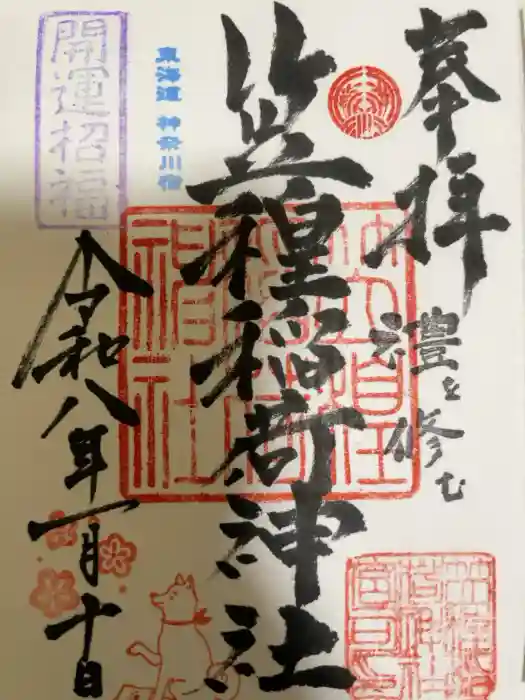 奉拝
禮を修む
笠䅣稲荷神社
東海道 神奈川宿
開運招福
令和八年一月十日